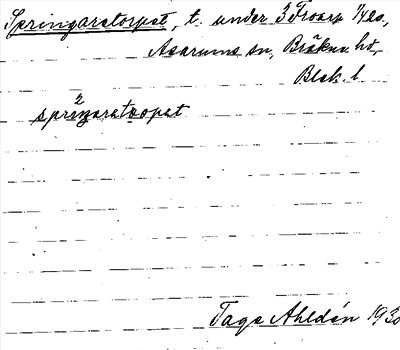 Springaretorpet, t. under 3 Froarp 1/4 
Asarums sn, Bräkne hd,
Blek. l.
spriŋaretorpet
Tage Ahldén 1930